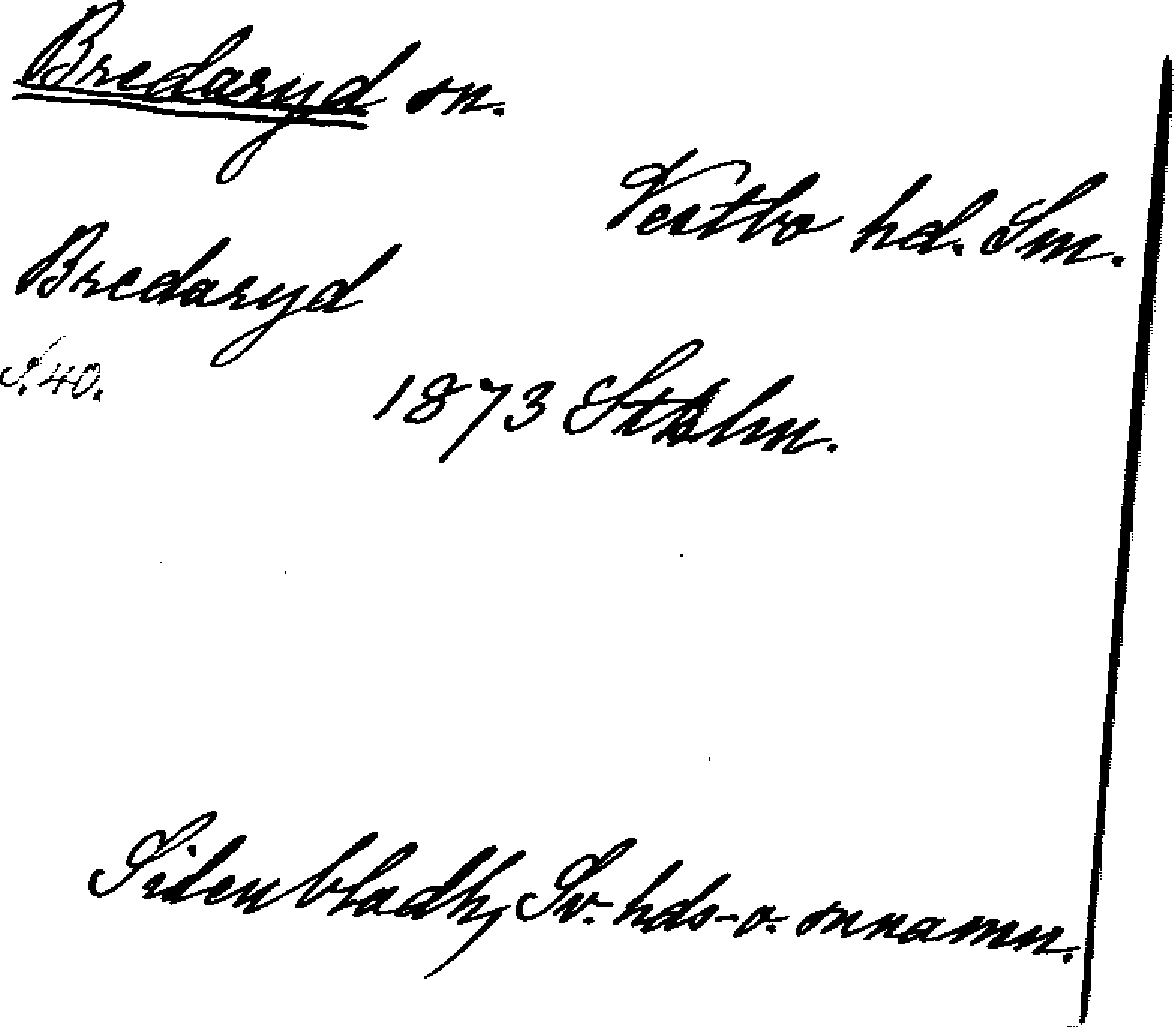 Bredaryd sn.
Vestbo hd. Sm.
Bredaryd
S. 40.
1873 Sthlm.
Sidenbladh, Sv. hds- o. snnamn.